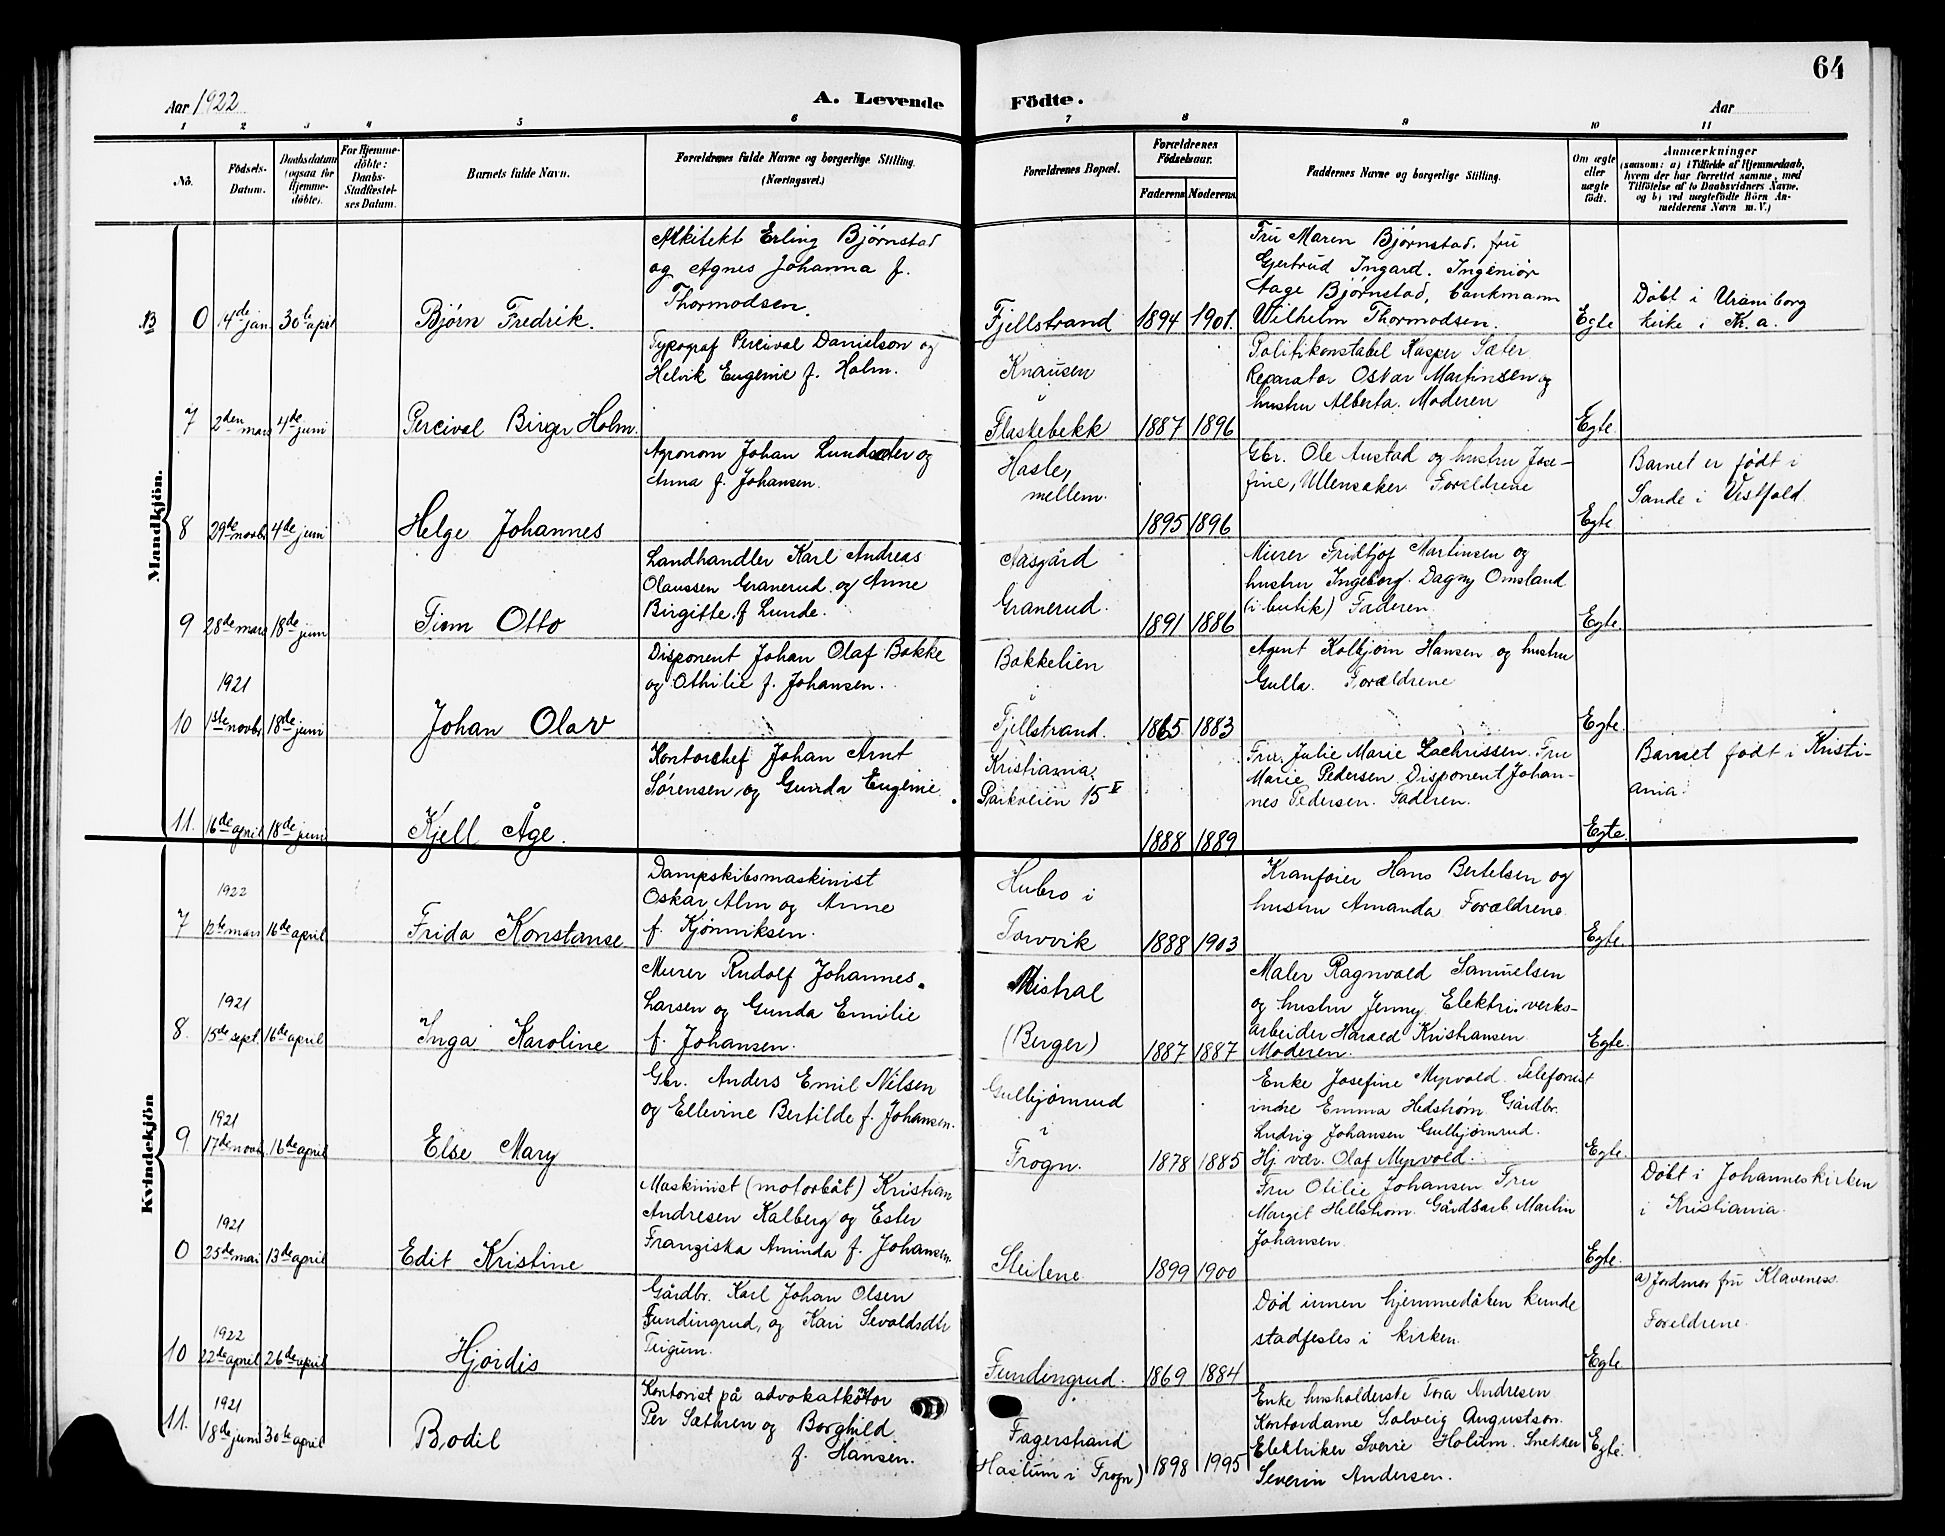 64
Aar 1922
A. Levende Födte.
Aar
1 2 3 4 5 6 7 8 9 10 11
No.
Födsels-
Datum.
Daabsdatum
(ogsaa for
Hjemme-
döbte).
For Hjemme-
döbte:
Daabs-
Stadfæstel-
ses Datum.
Barnets fulde Navn.
Forældrenes fulde Navne og borgerlige Stilling.
(Næringsvei.)
Forældrenes Bopæl.
Forældrenes
Födselsaar.
Faderens Moderens
Faddernes Navne og borgerlige Stilling.
Om ægte
eller
uægte
født.
Anmærkninger
(saasom: a) i Tilfælde af Hjemmedaab,
hvem der har forrettet samme, med
Tilföielse af to Daabsvidners Navne.
og b) ved uægtefödte Börn An-
melderens Navn m. V.)
Mandkjön.
13 0 14de jan 30te april
Bjørn Fredrik.
Arkitekt Erling Bjørnstad
og Agnes Johanna f.
Thormodsen.
Fjellstrand
1894 1901.
Fru Maren Bjørnstad. fru
Gjertrud Ingard. Ingeniør
Aage Bjørnstad, bankmann
Wilhelm Thormodsen.
Egte
Døbt i Uranieborg
kirke i K.a.
7 2den mars 4de juni
Percival Birger Holm.
Typograf Percival Danielson og
Helvik Eugenie f. Holm.
Knausen
i
Flaskebekk
1887 1896
Politikonstabel Kasper Sæter
Reparatør Oskar Martinsen og
hustru Alberta. Moderen
Egte.
8 29de novbr 4de juni
Helge Johannes
Agronom Johan Lundsæter og
Anna f. Johansen.
Hasle,
mellem.
1895 1896
Gbr. Ole Austad og hustru Jose-
fine, Ullensaker Forældrene
Egte
Barnet er født i
Sande i Vestfold.
9 28de mars 18de juni
Finn Otto
Landhandler Karl Andreas
Olaussen Granerud og Anne
Birgitte f. Lunde.
Aasgård
Granerud.
1891 1886
Murer Fridtjof Martinsen og
hustru Ingeborg. Dagny Omsland
(i butik) Faderen.
Egte.
1921
10 1ste novbr 18de juni
Johan Olav
Disponent Johan Olaf Bakke
og Othilie f. Johansen.
Bakkelien
i
Fjellstrand.
1865 1883
Agent Kolbjørn Hansen og hustru
Gulla. Forældrene
Egte.
11. 16de april 18de juni
Kjell Åge.
Kontorchef Johan Arnt
Sørensen og Gunda Eugenie.
Kristiania.
Parkveien 15 II
1888 1889
Fru Julie Marie Zachrissen. Fru
Marie Pedersen. Disponent Johan-
nes Pedersen. Faderen.
Egte.
Barnet født i Kristi-
ania.
Kvindekjön
1922
7 12te mars 16de april
Frida Konstanse
Dampskibsmaskinist
Oskar Alm og Anne
f. Kjønniksen.
Hubro i
Torvvik
1888 1903
Kranfører Hans Bertelsen og
hustru Amanda. Forældrene.
Egte.
1921
8. 15de sept. 16de april
Inga Karoline
Murer Rudolf Johannes
Larsen og Gunda Emilie
f. Johansen.
Mistral
(Berger)
1887 1887
Maler Ragnvald Samuelsen
og hustru Jenny, Elektri.verks-
arbeider Harald Kristiansen
Moderen.
Egte.
1921
9. 17de novbr 16de april
Else Mary
Gbr. Anders Emil Nilsen
og Ellevine Bertilde f. Johansen.
Gulbjørnrud
i
Frogn.
1878 1885
Enke Josefine Myrvold. Telefonist
indre Emma Hedstrøm. Gårdbr.
Ludvig Johansen Gulbjørnrud.
Hj vær. Olaf Myrvold.
Egte.
1921
0 25de mai 13de april
Edit Kristine
Maskinist (motorbåt) Kristian
Andresen Kalberg og Ester
Franziska Aminda f. Johansen.
Steilene
1899 1900
Fru Otilie Johansen Fru
Margit Hellstrøm. Gårdsarb. Martin
Johansen.
Egte.
Døbt i Johanneskirken
i Kristiania.
1922
10 22de april 26de april
Hjørdis
Gårdbr. Karl Johan Olsen
Fundingrud, og Kari Sevaldsdtr
Teigum.
Fundingrud.
1869 1884
Død innen hjemmedåben kunde
stadfestes i kirken.
Egte
a) Jordmor fru Klaveness.
Foreldrene.
1921
11. 18de juni 30te april
Bodil
Kontorist på advokatkontor
Per Sæthren og Borghild
f. Hansen.
Fagerstrand
(Haslum i Frogn)
1898 1995
Enke husholderske Tora Andresen
Kontordame Solveig Augustson.
Elektriker Sverre Holum. Snekker
Severin Andersen.
Egte.